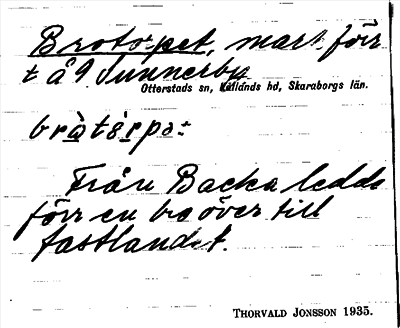 Brotorpet, mark förr
t å 9 Sunnerby
Otterstads sn, Kållands hd, Skaraborgs län.
Från Backa ledde
förr en bro över till
fastlandet.
THORVALD JONSSON 1935.